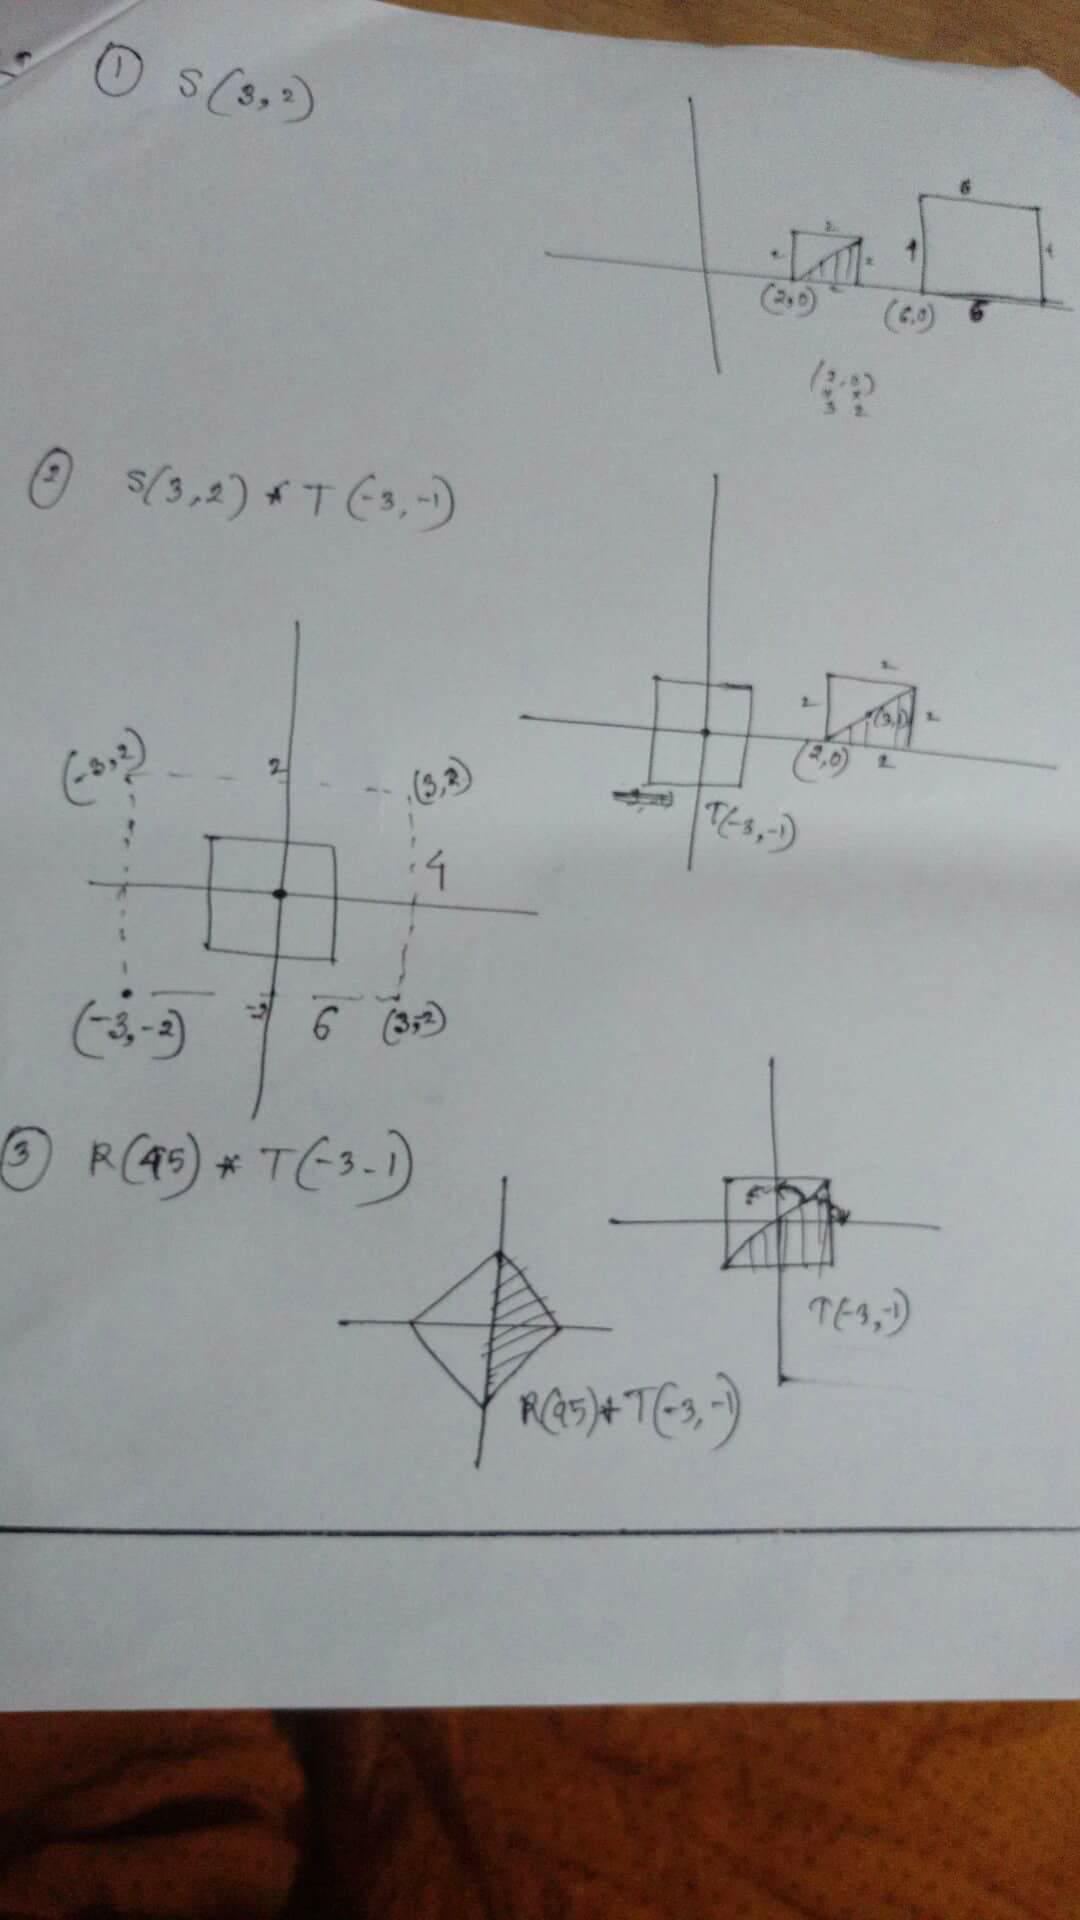 ① S(3,2)
6
2
2 2
4 4
2
(2,0) (6,0) 6
(2,0)
× ×
3 2
② S(3,2) * T(-3,-1)
2
2 (3,1) 2
(2,0) 2
T(-3,-1)
(-3,2) 2 (3,2)
4
(-3,-2) -2 6 (3,-2)
③ R(45) * T(-3-1)
T(-3,-1)
R(45)* T(-3,-1)